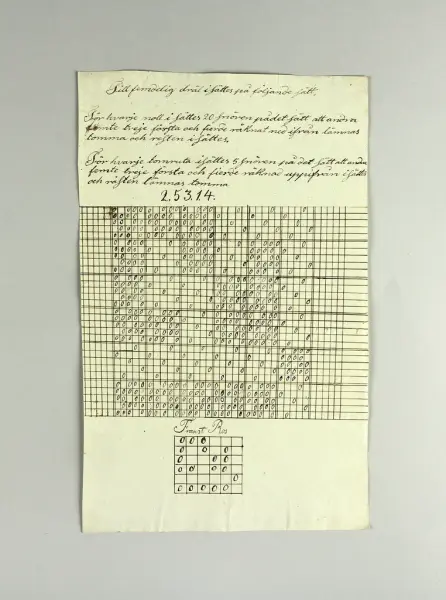 Till femdelig dräl isättes på följande sätt.
För hvarje noll i sättes 20 snören på det sätt att andra
femte treje första och fierde räknat ned ifrån lämnas
tomma och resten isättes.
För hvarje tomruta isättes 5 snören på det sätt att andra
femte treje första och fierde räknat uppifrån isättes
och resten lämnas tomma
2.5.3.1.4.